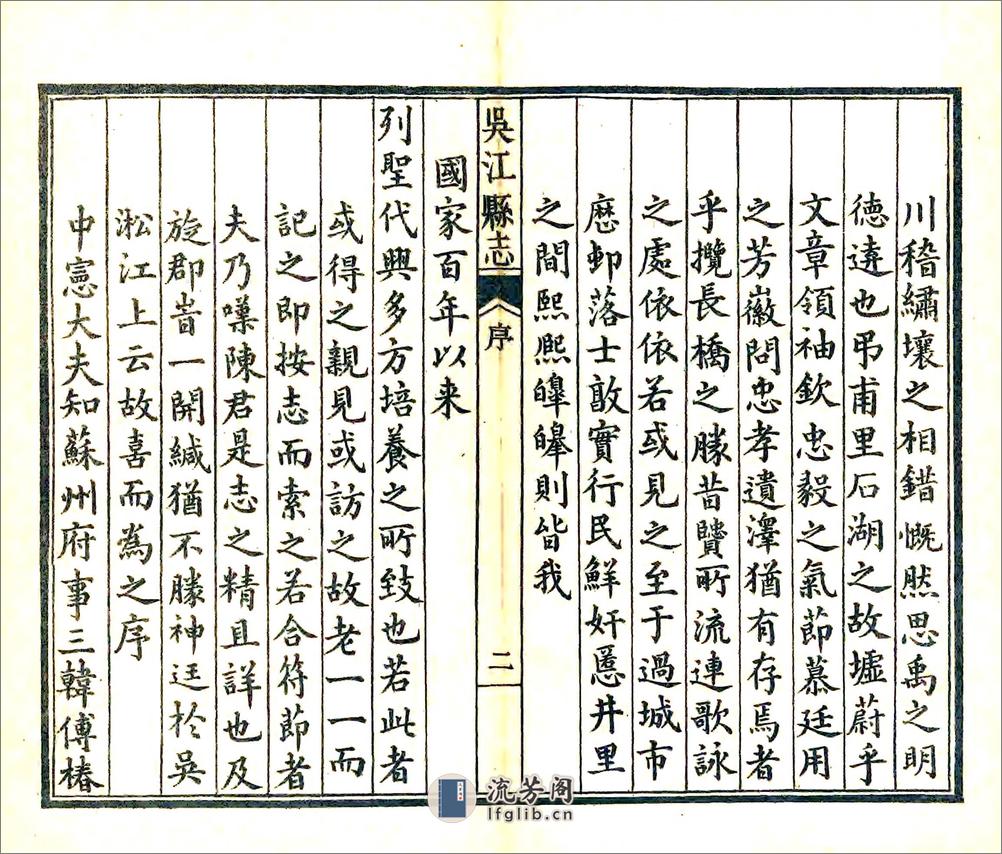 川稽繡壤之相錯慨然思禹之明
德逺也弔甫里石湖之故墟蔚乎
文章領袖欽忠毅之氣節慕廷用
之芳徽問忠孝遺澤猶有存焉者
乎攬長橋之勝昔賢所流連歌詠
之處依依若或見之至于過城市
歷邨落士敦實行民鮮奸慝井里
之間熙熙皥皥則皆我
吳江縣志
序
二
國家百年以来
列聖代興多方培養之所致也若此者
或得之親見或訪之故老一一而
記之即按志而索之若合符節者
夫乃嘆陳君是志之精且詳也及
旋郡旹一開緘猶不勝神迋於吳
淞江上云故喜而為之序
中憲大夫知蘇州府事三韓傅椿
流芳阁
lfglib.cn